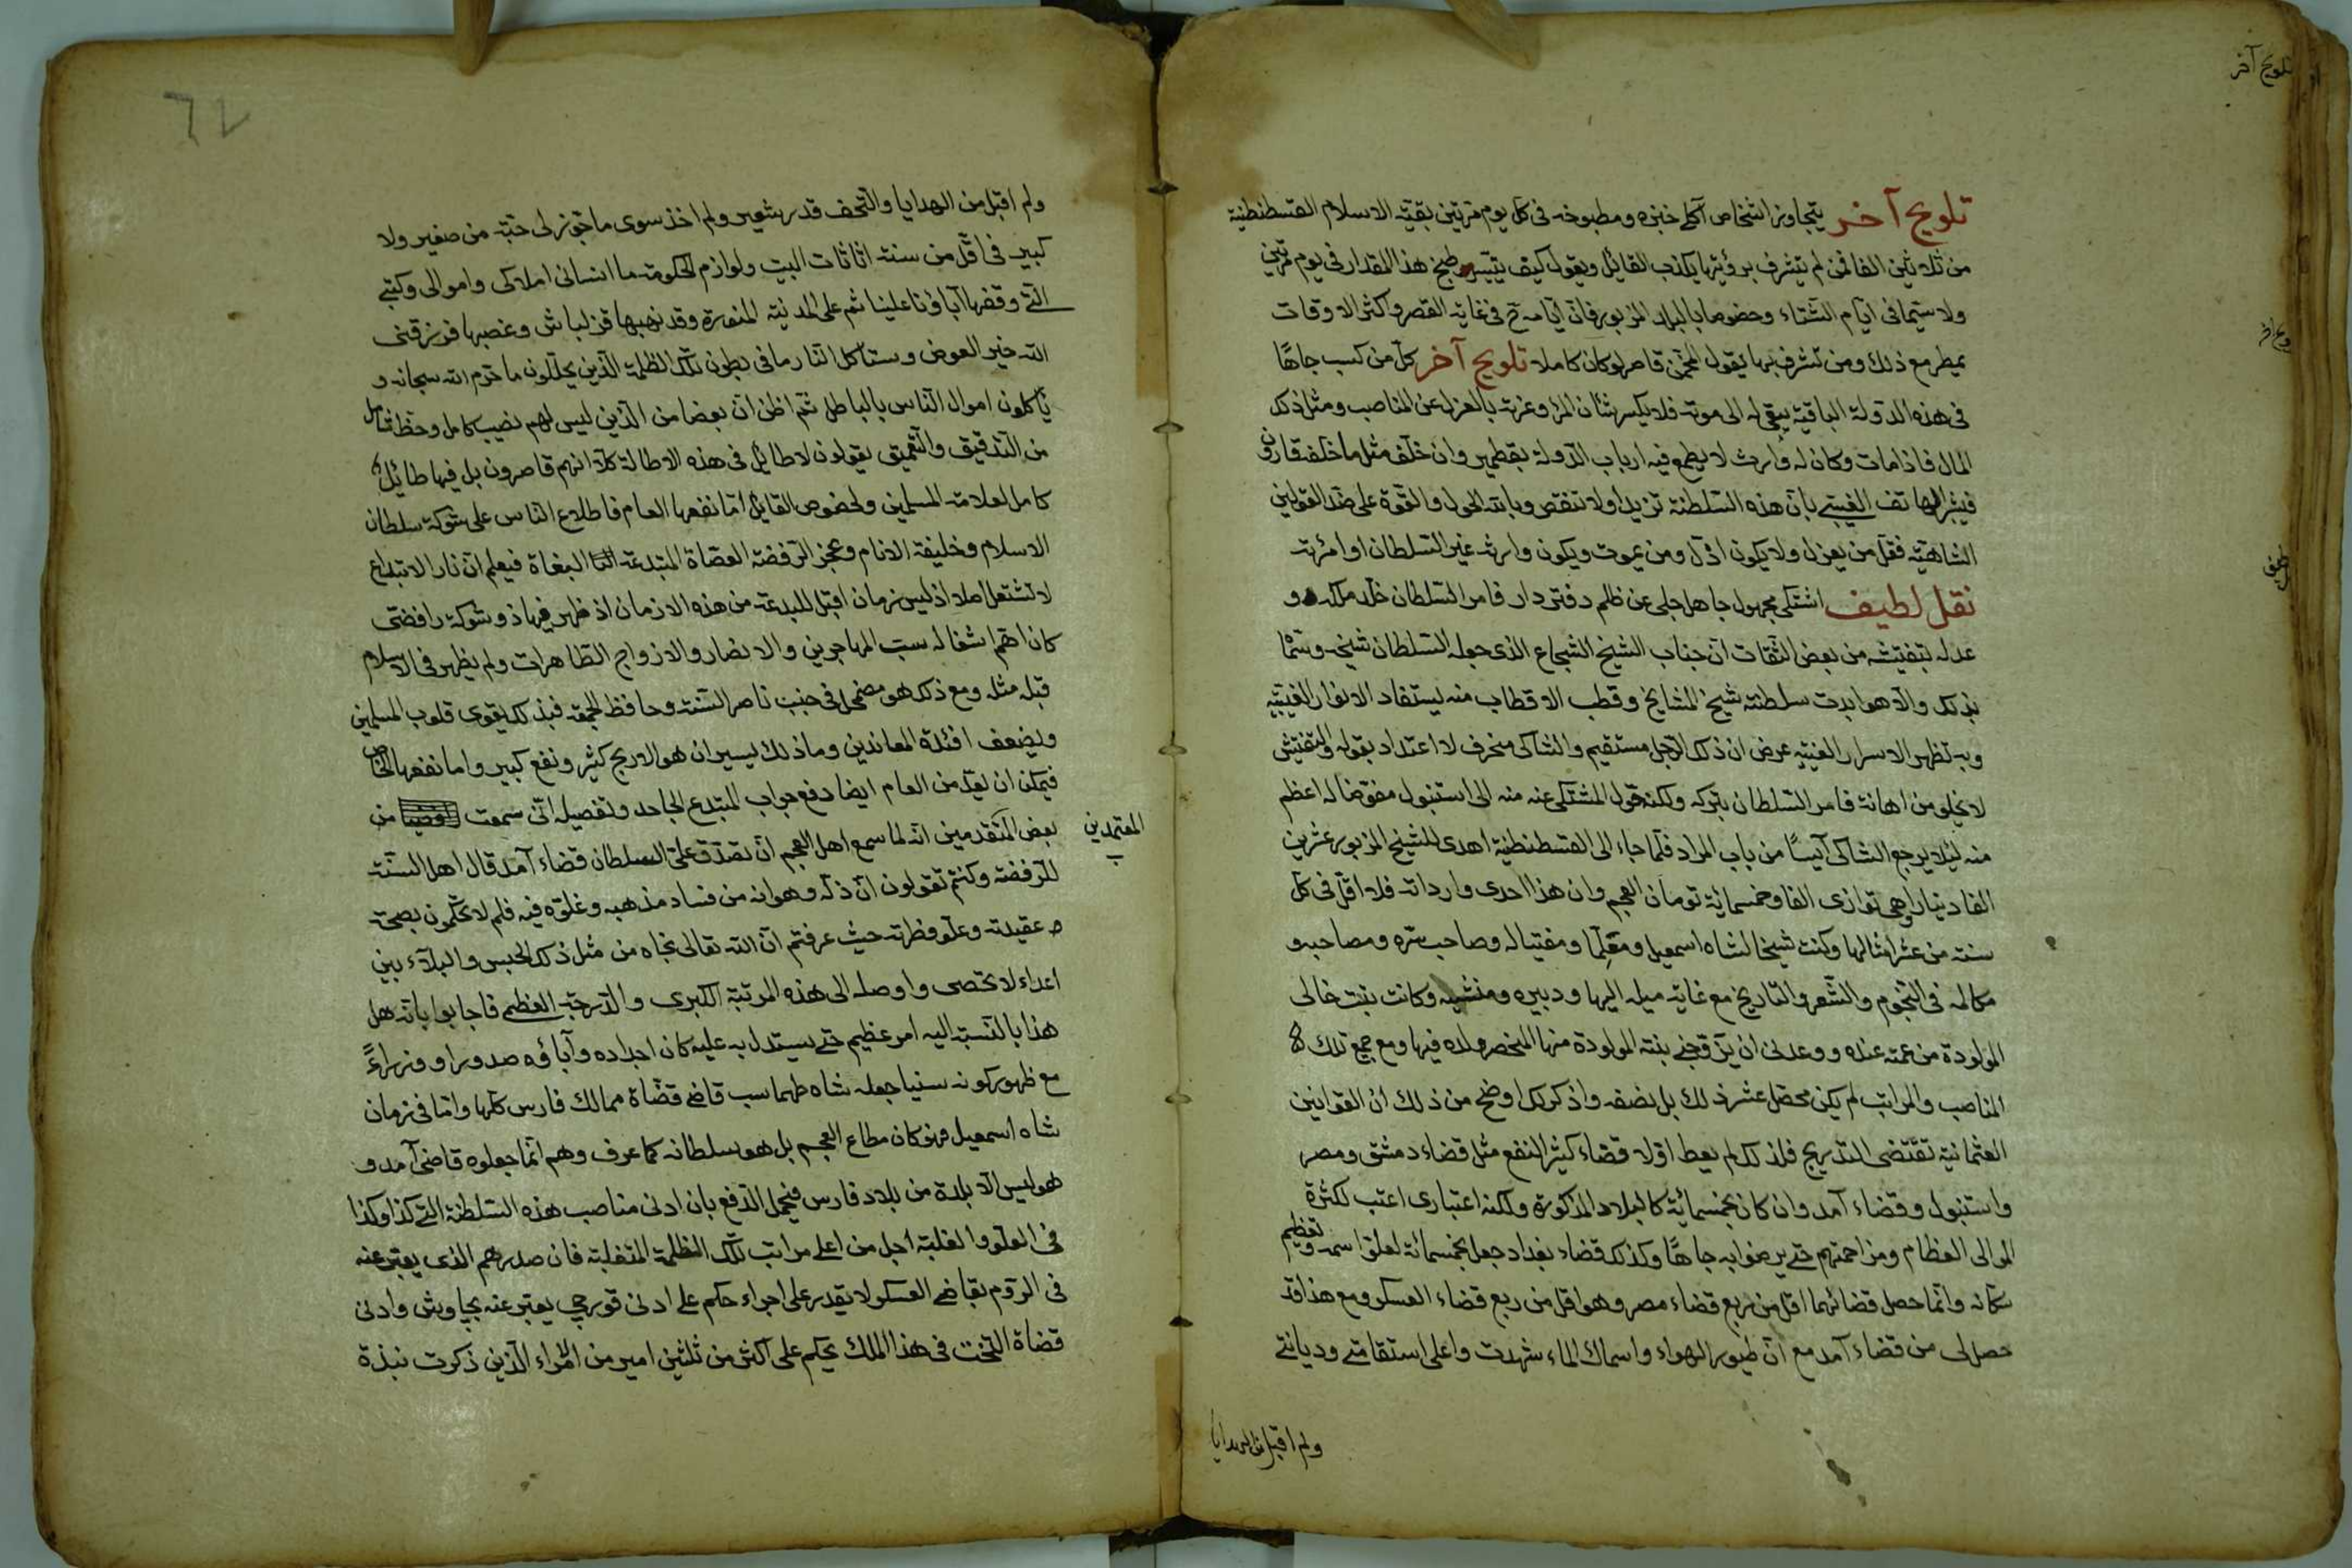 تلويح آخر
تلويح آخر يتجاوز اشخاص آكلي خبزه ومطبوخه فى كل يوم مرتين بقبّة الاسلام القسطنطنية
من ثلاثين الفا فمن لم يتشرف برؤيتها يكذب القائل ويقول كيف يتيسر طبخ هذا المقدار فى يوم مرتين
ولا سيما فى ايام الشتاء وخصوصا بالبلد المزبور فان ايامه ح فى غاية القصر واكثر الاوقات
يمطر مع ذلك ومن تشرف بها يقول المخمّن قاصر لو كان كاملا تلويح آخر كل من كسب جاها
فى هذه الدولة الباقية يبقى له الى موته فلا يكسر شان المرا وعزته بالعزل عن المناصب ومثل ذكد
المال فاذا مات وكان له وارث لا يطمع فيه ارباب الدولة بقطمير وان خلف مثل ما خلف قارون
فيشر الهاتف الغيبى بان هذه السلطنة تزيد ولا تنقص وبالله الحول والقوة على ضد القولين
الشاهية فقل من يعزل ولا يكون اذل ومن يموت ويكون وارثه غير السلطان او امرته
نقل لطيف اشتكى مجهول جاهل جلى عن ظلم دفتردار فامر السلطان خلد ملكه و
عدله بتفتيشه من بعض الثقات ان جناب الشيخ الشجاع الذى جعله السلطان شيخه وسما
بذلك والا هو ابدت سلطنته شيخ المشايخ وقطب الاقطاب منه يستفاد الانوار الغيبيه
وبه تظهر الاسرار الغيبيه عرض ان ذلك الرجل مستقيم والشاكى منحرف لا اعتداد بقوله والتفتيش
لا يخلو من اهانة فامر السلطان بتركه ولكنه حوّل المشتكى عنه منه الى استنبول مفوضا له اعظم
منه لئلا يرجع الشاكى آيسا من باب المراد فلما جاء الى القسطنطنية اهدى للشيخ المزبور عشرين
الفا دينارا وهى توازى الفا وخمسمائة تومان العجم وان هذا احدى وارداته فلا اقل فى كل
سنة من عشر امثالها وكنت شيخا لشاه اسمعيل ومعلما ومفتيا له وصاحب سره ومصاحبه و
مكالمه فى النجوم والشعر والتاريخ مع غاية ميله اليها ودبيره ومنشيه وكانت بنت خالى
المولودة من عمته عنده ووعدنى ان يزوجنى بنته المولودة منها المنحصر ولده فيها ومع جميع تلك
المناصب والمراتب لم يكن محصل عشر ذلك بل نصفه واذكر لك اوضح من ذلك ان القوانين
العثمانية تقتضى التدريج فلذلك لم يعط اولا قضاء كثير النفع مثل قضاء دمشق ومصر
واستنبول وقضاء آمد وان كان بخمسمائة كالبلاد المذكورة ولكنه اعتبارى اعتب لكثرة
الموالى العظام ومزاحمتهم حتى يرضوا به جاها وكذلك قضاء بغداد جعل بخمسمائة لعلو اسمه وتعظيم
سكانه وانما حصل قضائهما اقل من ربع قضاء مصر وهو اقل من ربع قضاء العسكر ومع هذا قد
حصل لى من قضاء آمد مع ان طيور الهواء واسماك الماء شهدت واعلى استقامتى وديانتى
ولم اقبل من الهدايا
ولم اقبل من الهدايا والتحف قدر شعير ولم اخذ سوى ما جوز لى حبة من صغير ولا
كبير فى اقل من سنة اثاثات البيت ولوازم الحكومة ما انسانى املاكى واموالى وكتبى
التى وقفها آباؤنا علينا ثم على المدينة المنورة وقد نهبها قزلباش وغصبها فرزقنى
الله خير العوض وستأكل النار ما فى بطون تلك الظلمة الذين يحللون ما حرم الله سبحانه و
يأكلون اموال الناس بالباطل ثم اظن ان بعضا من الذين ليس لهم نصيب كامل وحظ شامل
من التدقيق والتعميق يقولون لا طائل فى هذه الاطالة كلا انهم قاصرون بل فيها طائل
كامل لعلامة المسلمين ولخصوص القائل اما نفعها العام فاطلاع الناس على شوكة سلطان
الاسلام وخليفة الانام وعجز الرفضة العصاة المبتدعة البغاة فيعلم ان نار الابتداع
لا تشتعل اصلا اذ ليس زمان اقبل للبدعة من هذه الازمان اذ ظهر فيها ذو شوكة رافضى
كان اهم اشغاله سب المهاجرين والانصار والازواج الطاهرات ولم يظهر فى الاسلام
قبله مثله ومع ذلك هو مضمحل فى جنب ناصر السنة وحافظ الجمعة فبذلك يقوى قلوب المسلمين
ويضعف افئدة المعاندين وما ذلك بيسير ان هو الا ربح كثير ونفع كبير واما نفعها الخاص
فيمكن ان يعد من العام ايضا دفع جواب المبتدع الجاحد وتفصيله انى سمعت من
المعتمدين
بعض المتقدمين انه لما سمع اهل العجم ان تصدق على السلطان قضاء آمد قال اهل السنة
للرفضة وكنتم تقولون ان ذله وهوانه من فساد مذهبه وغلوه فيه فلم لا تحكمون بصحة
عقيدته وعلو فطرته حيث عرفتم ان الله تعالى نجاه من مثل ذلك الحبس والبلاء بين
اعداء لا تحصى واوصله الى هذه المرتبة الكبرى والدرجة العظمى فاجابوا بانه هل
هذا بالنسبة اليه امر عظيم حتى يستدل به عليه كان اجداده وآباؤه صدورا ووزراءً
مع ظهور كونه سنيا جعله شاه طهماسب قاضى قضاة ممالك فارس كلها واما فى زمان
شاه اسمعيل فهو كان مطاع العجم بل هو سلطانه كما عرف وهم انما جعلوه قاضى آمد و
هو ليس الا بلدة من بلاد فارس فيحمل الدفع بان ادنى مناصب هذه السلطنة التى كذا وكذا
فى العلو والغلبة اجل من اعلى مراتب تلك الظلمة المتغلبة فان صدرهم الذى يعبر عنه
فى الروم بقاضى العسكر لا يقدر على اجراء حكم على ادنى قورچى يعبر عنه بچاوش وادنى
قضاة التخت فى هذا الملك يحكم على اكثر من ثلثين امير من الامراء الذين ذكرت نبذة